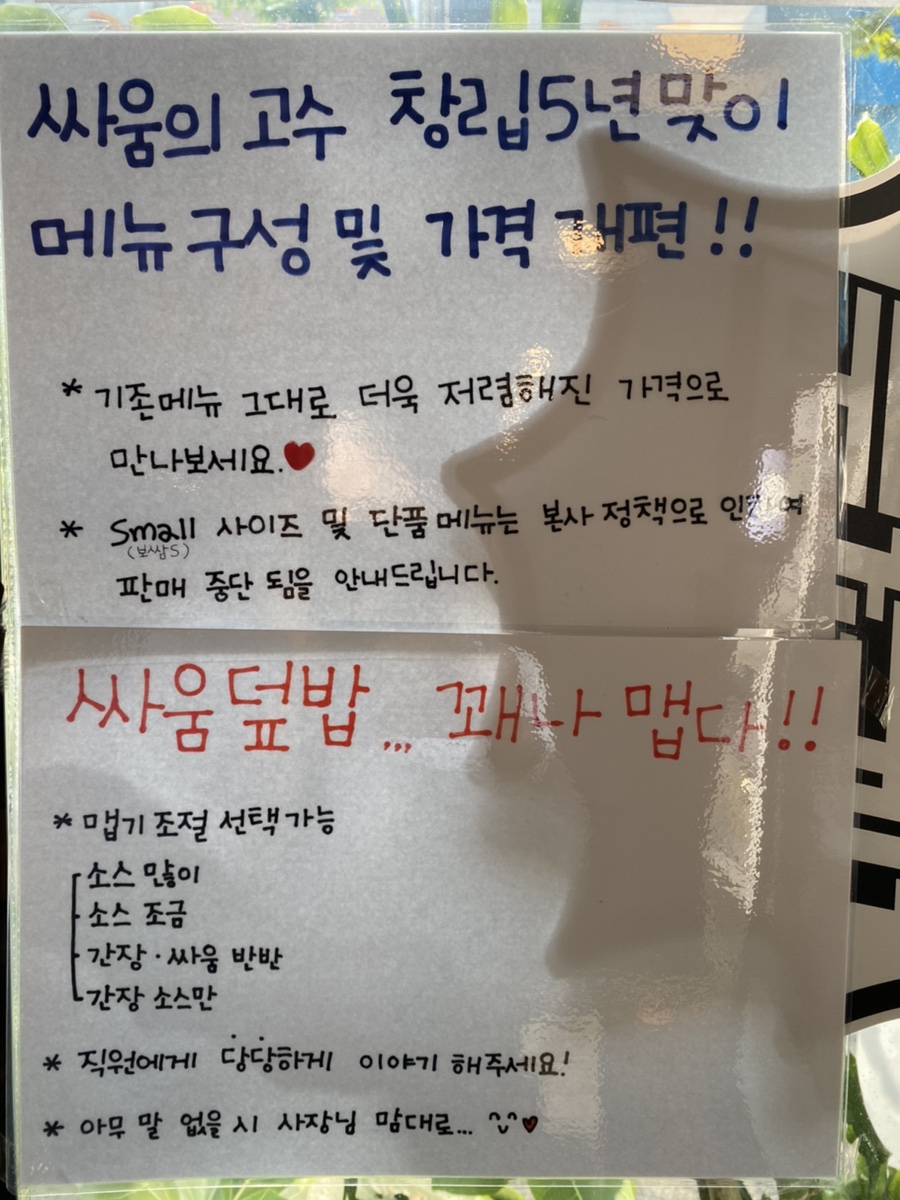 싸움의 고수 창립5년 맞이
메뉴구성 및 가격 개편!!
* 기존메뉴 그대로 더욱 저렴해진 가격으로
만나보세요.♥
* Small 사이즈 및 단품메뉴는 본사 정책으로 인하여
(보쌈S)
판매 중단 됨을 안내드립니다.
싸움덮밥... 꽤나 맵다!!
* 맵기 조절 선택가능
소스 많이
소스 조금
간장·싸움 반반
간장 소스만
* 직원에게 당당하게 이야기 해주세요!
* 아무 말 없을 시 사장님 맘대로... ^^♥